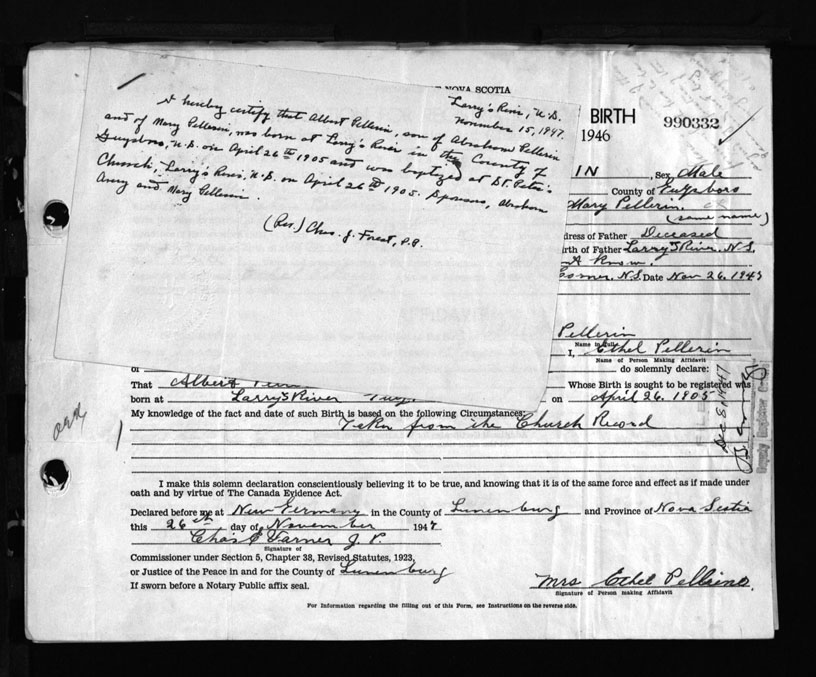 NOVA SCOTIA
Larry's River, N.S.
November 15, 1947.
I hereby certify that Albert Pellerin, son of Abraham Pellerin
and of Mary Pellerin, was born at Larry's River in the County of
Guysboro, N.S. on April 26th 1905 and was baptized at St. Peter's
Church, Larry's River, N.S. on April 26th 1905. Sponsors, Abraham
Avery and Mary Pellerin.
(Rev.) Chas. J. Forest, P.P.
BIRTH
1946
990332
IN Sex Male
County of Guysboro
Mary Pellerin.
(same name)
dress of Father Deceased
irth of Father Larry's River, N.S.
Corner, N.S. Date Nov 26. 1947
Pellerin
Name in full
I, Ethel Pellerin
Name of Person Making Affidavit
of do solemnly declare:
That Albert Whose Birth is sought to be registered was
born at Larry's River on April 26. 1905
My knowledge of the fact and date of such Birth is based on the following Circumstances:
Taken from the Church Record
Dec 8, 1947
I make this solemn declaration conscientiously believing it to be true, and knowing that it is of the same force and effect as if made under
oath and by virtue of The Canada Evidence Act.
Declared before me at New Germany in the County of Lunenburg and Province of Nova Scotia
this 26th day of November 1947
Chas Varner J. P.
Signature of
Commissioner under Section 5, Chapter 38, Revised Statutes, 1923,
or Justice of the Peace in and for the County of Lunenburg
If sworn before a Notary Public affix seal.
Mrs Ethel Pellerine.
Signature of Person making Affidavit
For Information regarding the filling out of this Form, see Instructions on the reverse side.